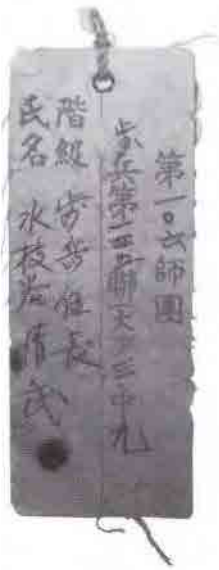 第一〇六師團
歩兵第一四五聯大 三中九
階級 歩兵伍長
氏名 水枝 清武